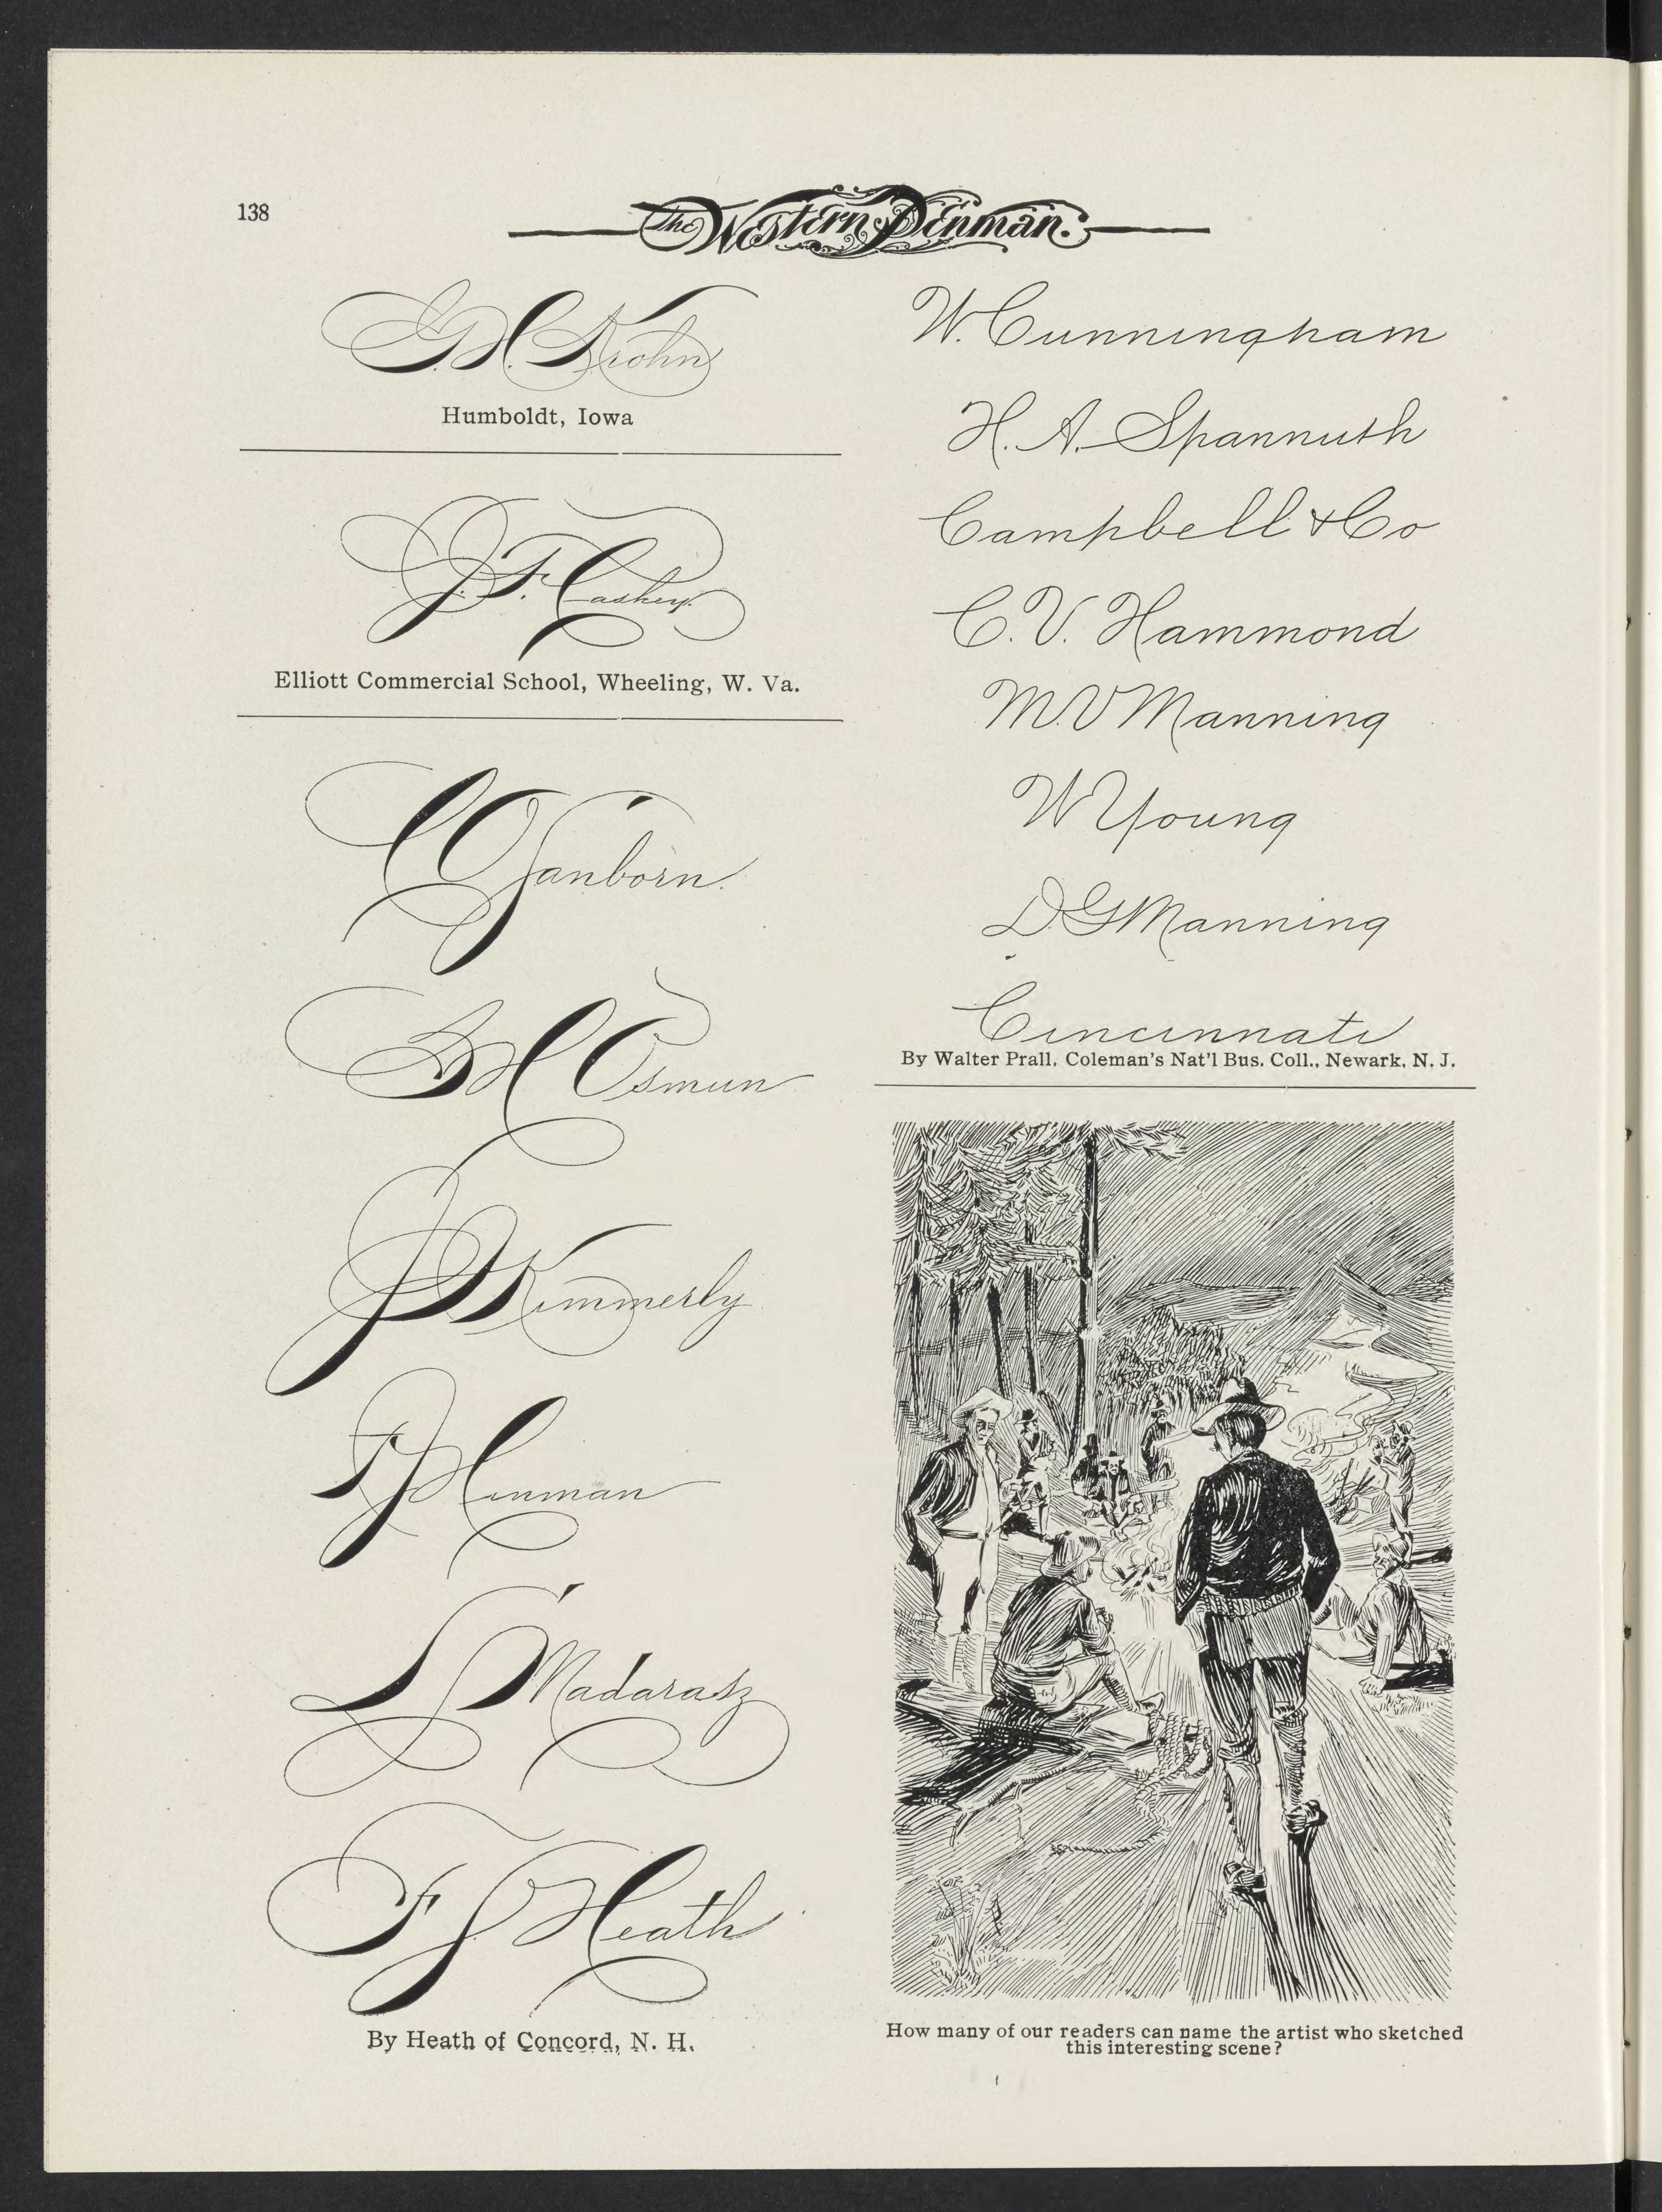 138
The Western Penman.
G. H. Krohn
Humboldt, Iowa
J. F. Caskey.
Elliott Commercial School, Wheeling, W. Va.
C C Sanborn.
B H Osmun
J D Kimmerly
A J Hinman
L Madarasz
F S Heath
By Heath of Concord, N. H.
W. Cunningham
H. A. Spannuth
Campbell & Co
C. V. Hammond
M. V Manning
W Young
D. G Manning
Cincinnati
By Walter Prall, Coleman's Nat'l Bus. Coll., Newark, N. J.
How many of our readers can name the artist who sketched
this interesting scene?